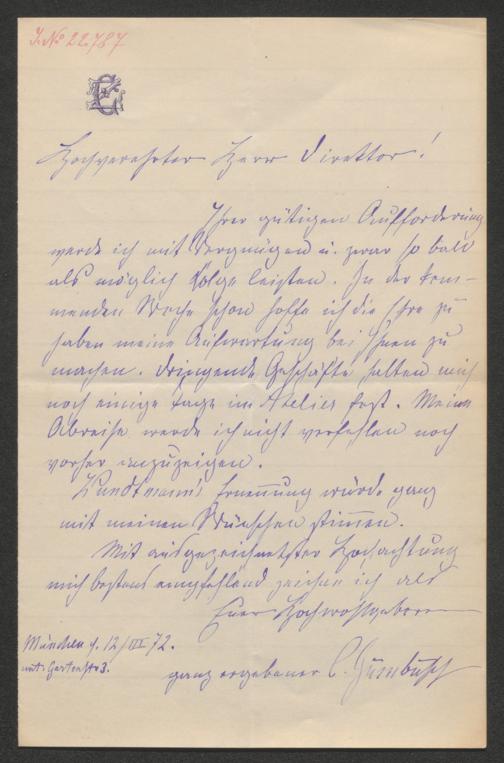 J. No 22.787
Hochverehrter Herr Direktor!
Ihrer gütigen Aufforderung
werde ich mit Vergnügen u. zwar so bald
als möglich Folge leisten. In der kom-
menden Woche schon hoffe ich die Ehre zu
haben meine Aufwartung bei Ihnen zu
machen. Dringende Geschäfte halten mich
noch einige Tage im Atelier fest. Meine
Abreise werde ich nicht verfehlen noch
vorher anzuzeigen.
Kundtmann's Ernennung würde ganz
mit meinen Wünschen stimmen.
Mit ausgezeichnetster Hochachtung
mich bestens empfehlend zeichne ich als
Euer Hochwohlgeboren
München d. 12/III 72.
unt. Gartenstr 3.
ganz ergebener C. Zumbusch